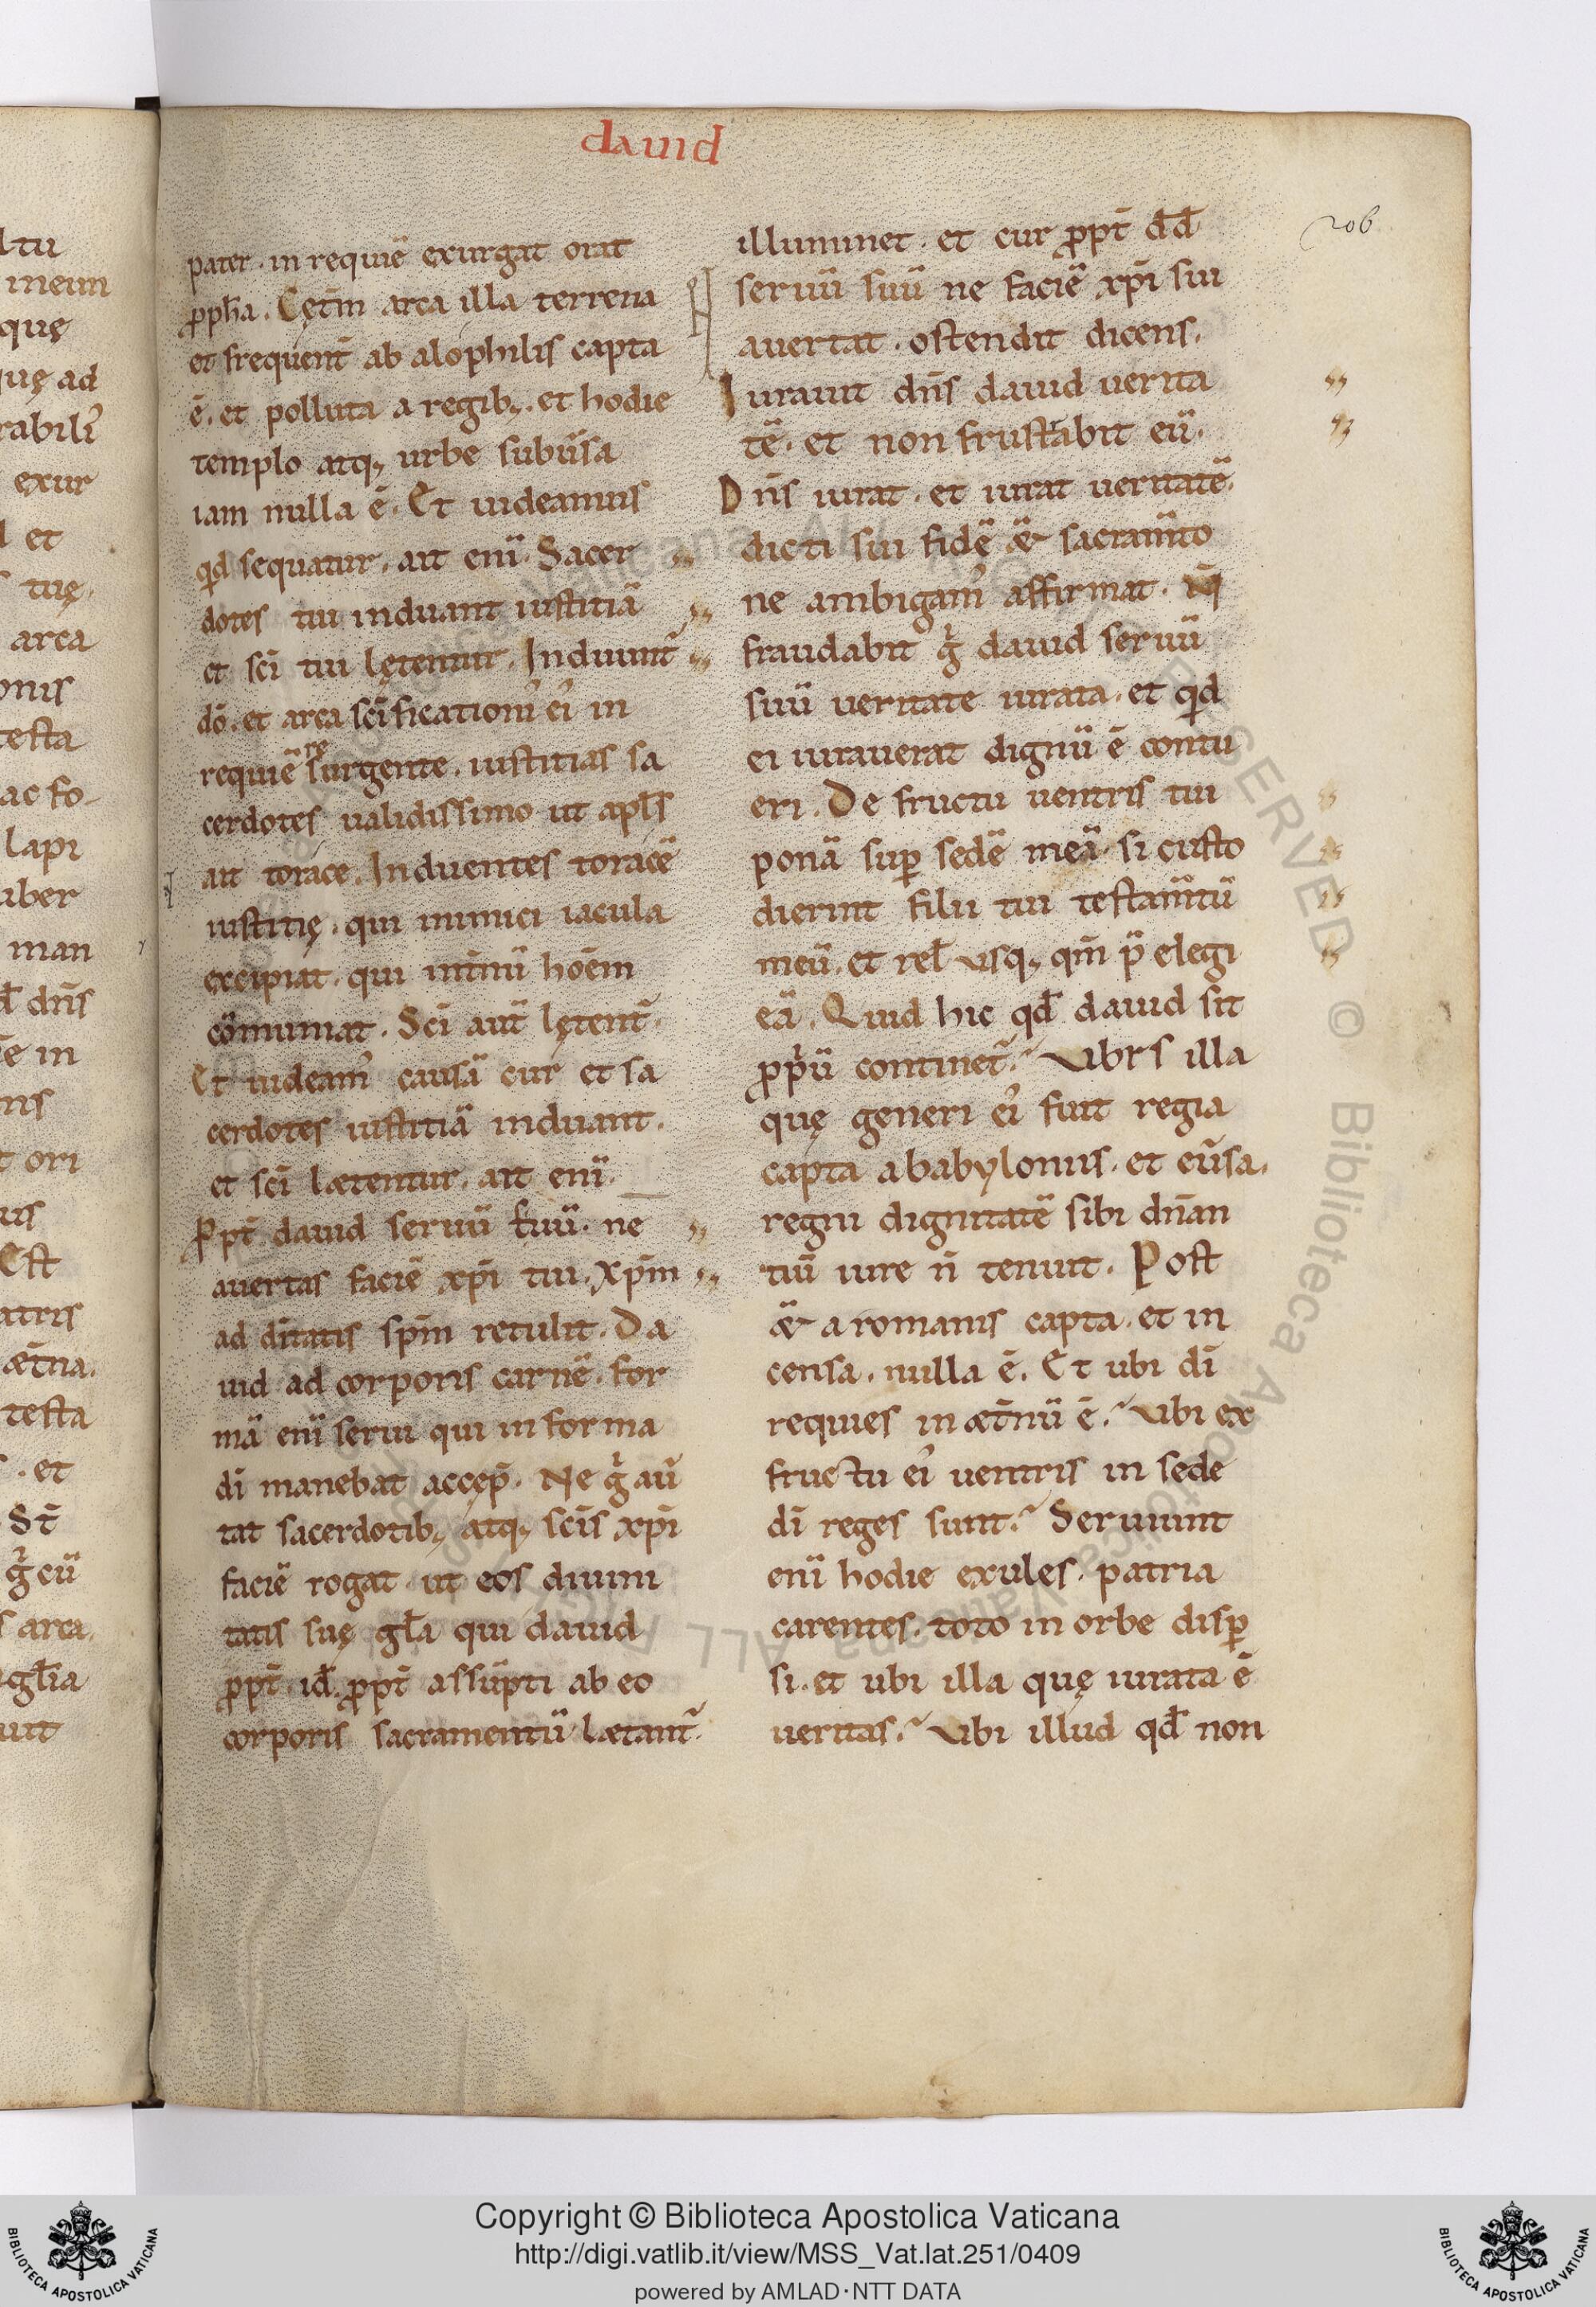 dauid
206
pater. in requiē exurgat orat
ꝓpha. Cęt̄m arca illa terrena
et frequent̄ ab alophilis capta
ē. et polluta a regib;. et hodie
templo atq; urbe subūsa
iam nulla ē. Et uideamus
qd sequatur. ait enī. Sacer
dotes tui induant iustitiā
et sc̄i tui lętentur. Induunt̄
dō. et arca sc̄ificationi' ei' in
requiē resurgente. iustitias sa
cerdotes ualidissimo ut apl̄s
ait torace. Induentes toracē
iustitię. qui inimici iacula
excipiat. qui int̄nū hoēm
cōmuniat. Sc̄i aut̄ lętent̄.
Et uideam' causā cur et sa
cerdotes iustitiā induant.
et sc̄i lætentur. ait enī.
Ꝓpt̄ dauid seruū tuū. ne
auertas faciē xp̄i tui. Xp̄m
ad dītatis sp̄m retulit. Da
uid ad corporis carnē. for
mā enī serui qui in forma
dī manebat accep̄. Ne gͥ aū
tat sacerdotib; atq; sc̄is xp̄i
faciē rogat. ut eos diuini
tatis suę gl̄a qui dauid
ꝓpt̄ id. ꝓpt̄ assūpti ab eo
corporis sacramentū lætant̄.
illuminet. et cur ꝓpt̄ dd̄
seruū suū ne faciē xp̄i sui
auertat. ostendit dicens.
Iurauit dn̄s dauid uerita
tē. et non frustabit eū.
Dn̄s iurat. et iurat ueritatē.
dicti sui fidē & sacram̄to
ne ambigam' affirmat. N̄
fraudabit gͥ dauid seruū
suū ueritate iurata. et qd
ei iurauerat dignū ē contu
eri. De fructu uentris tui
ponā suꝑ sedē meā. si custo
dierint filii tui testam̄tū
meū. et rel̄ usq; qm̄ p̄ elegi
eā. Quid hic qd̄ dauid sit
ꝓpͥū continet̄. Vrbs illa
quę generi ei' fuit regia
capta a babyloniis. et eūsa.
regni dignitatē sibi dn̄an
tiū iure n̄ tenuit. Post
& a romanis capta. et in
censa. nulla ē. Et ubi dī
requies in æt̄nū ē. Vbi ex
fructu ei' uentris in sede
dī reges sunt. Seruiunt
enī hodie exules. patria
carentes. toto in orbe disꝑ
si. et ubi illa quę iurata ē
ueritas. Vbi illud qd̄ non
ltu
meum
quę
uę ad
rabili'
exur
et
tuę.
arca
onis
testa
ac fo-
lapi
uber
man
dn̄s
ē in
ns
ori
us
Est
atris
æt̄na.
testa
. et
St̄
gͥ cū
arca.
gl̄ia
uit
Copyright © Biblioteca Apostolica Vaticana
http://digi.vatlib.it/view/MSS_Vat.lat.251/0409
powered by AMLAD·NTT DATA
BIBLIOTECA APOSTOLICA VATICANA
BIBLIOTECA APOSTOLICA VATICANA